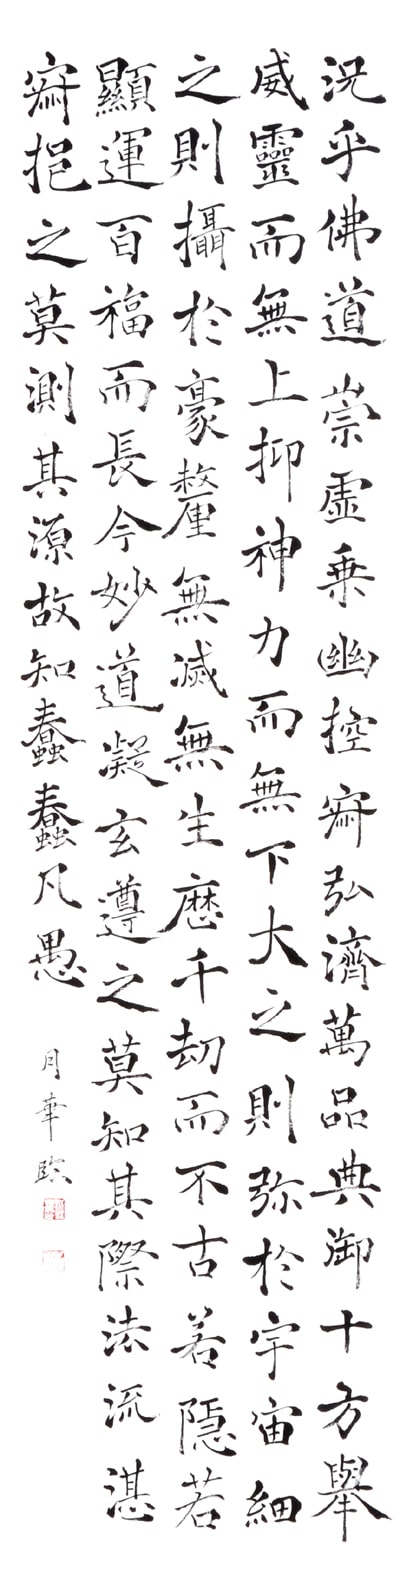 況乎佛道崇虛乗幽控寂弘濟萬品典御十方舉
威靈而無上抑神力而無下大之則弥於宇宙細
之則攝於豪釐無滅無生歷千劫而不古若隱若
顯運百福而長今妙道凝玄遵之莫知其際法流湛
寂挹之莫測其源故知蠢蠢凡愚
月華臨